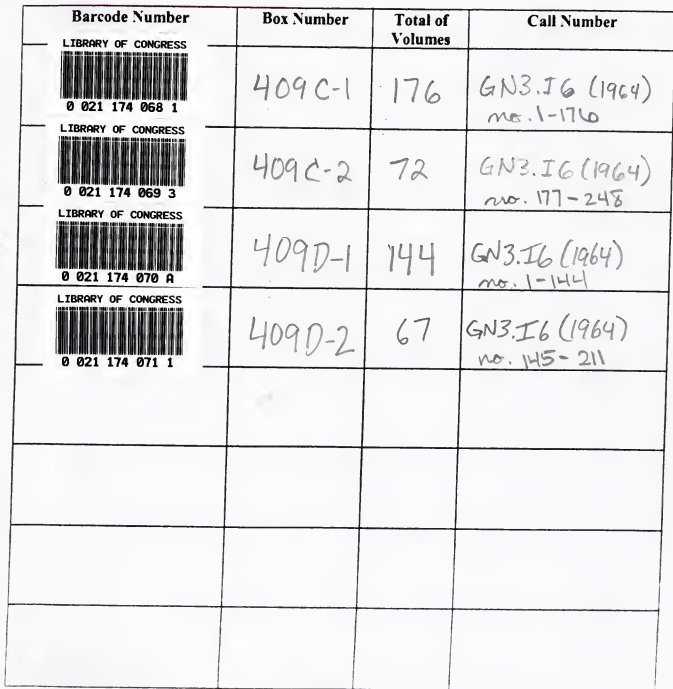 Barcode Number Box Number Total of Volumes Call Number
LIBRARY OF CONGRESS
0 021 174 068 1
409C-1 176 GN3.I6 (1964)
no. 1-176
LIBRARY OF CONGRESS
0 021 174 069 3
409C-2 72 GN3.I6 (1964)
no. 177-248
LIBRARY OF CONGRESS
0 021 174 070 A
409D-1 144 GN3.I6 (1964)
no. 1-144
LIBRARY OF CONGRESS
0 021 174 071 1
409D-2 67 GN3.I6 (1964)
no. 145-211